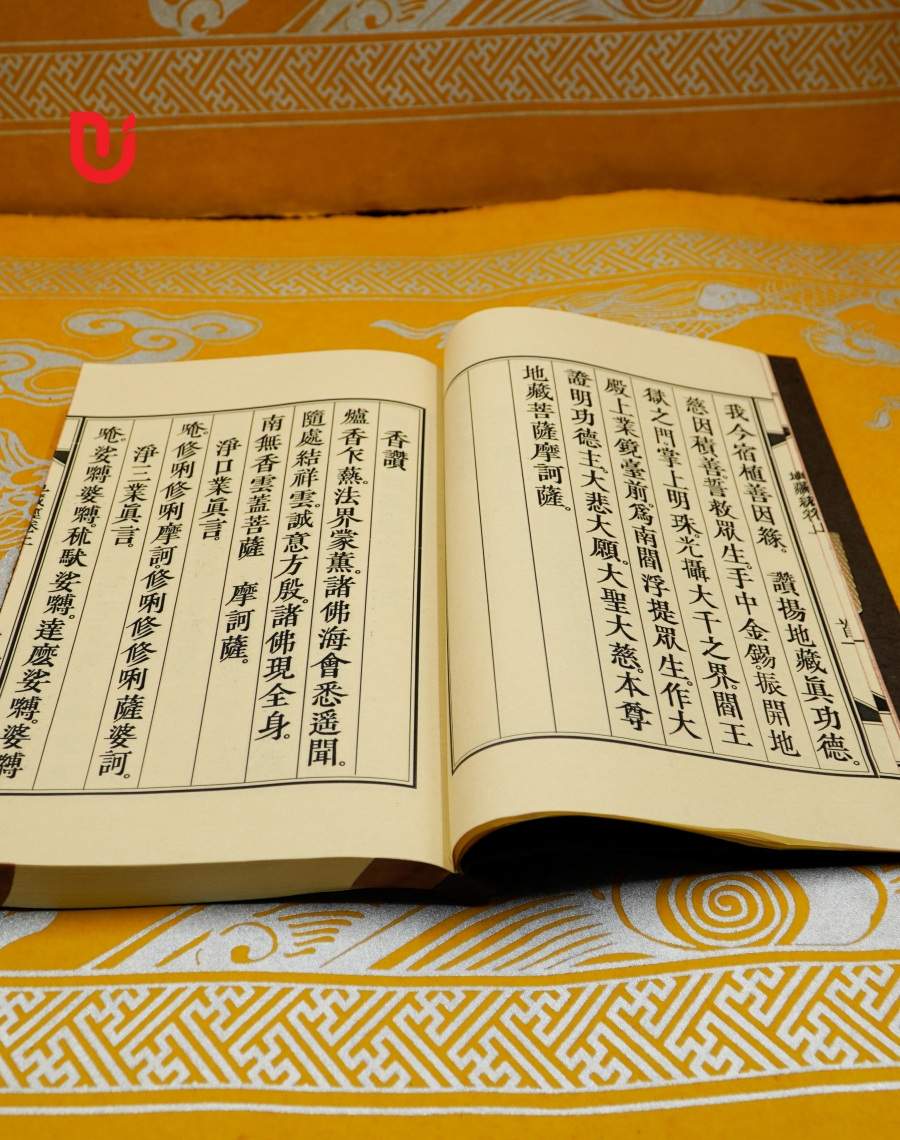 我今宿植善因緣。　讚揚地藏眞功德。
慈因積善誓救眾生。手中金錫。振開地
獄之門掌上明珠。光攝大千之界。閻王
殿上業鏡臺前。爲南閻浮提眾生。作大
證明功德主。大悲大願。大聖大慈。本尊
地藏菩薩摩訶薩。
香讚
爐香乍爇。法界蒙薰。諸佛海會悉遥聞。
隨處結祥雲。誠意方殷。諸佛現全身。
南無香雲蓋菩薩　摩訶薩。
淨口業眞言。
唵。修唎修唎摩訶。修唎修修唎薩婆訶。
淨三業眞言。
唵。娑嚩婆嚩。秫馱娑嚩。達麽娑嚩。婆嚩